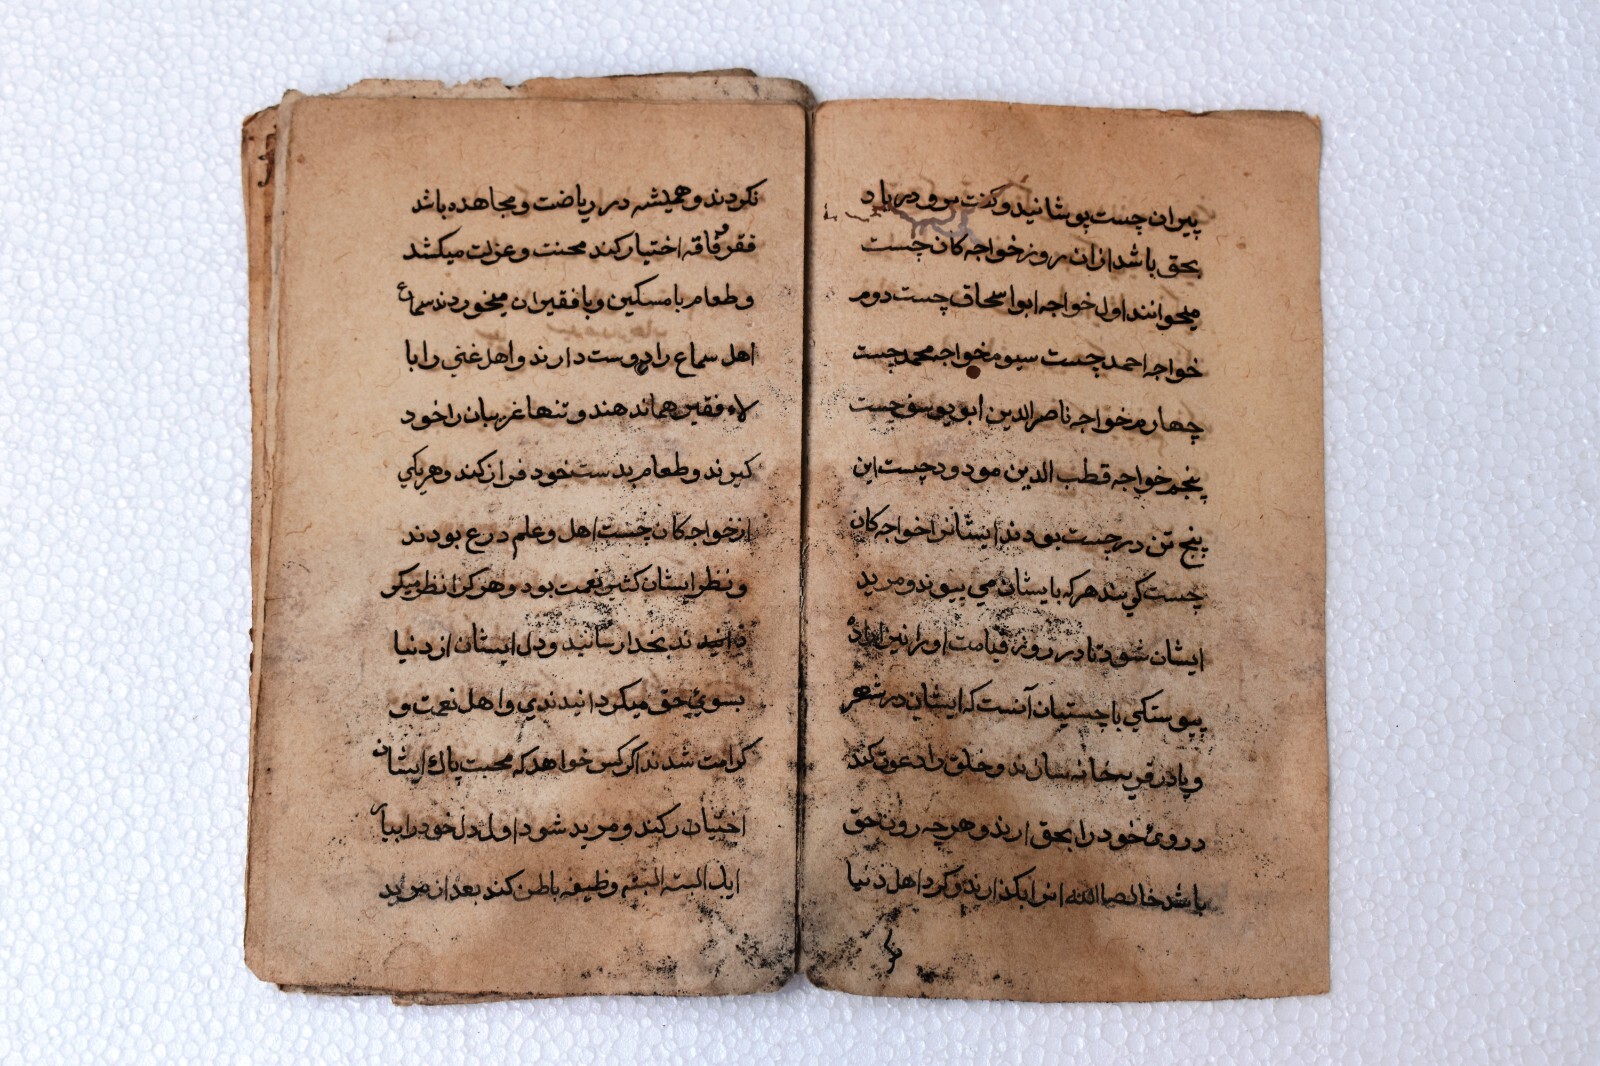 پیران چست پوشانید و کفت برو در باد
بحق باشد ازان روز خواجه کان چست
میخوانند اول خواجه ابواسحاق چست دوم
خواجه احمد چست سیوم خواجه محمد چست
چهارم خواجه ناصر الدین ابو یوسف چست
پنجم خواجه قطب الدین مودود چست این
پنج تن در چست بودند ایشانرا خواجه کان
چست کویند هر که بایشان می پیوند و مرید
ایشان شود تا در روز قیامت او را نیز
پیوستکی با چستیان آنست که ایشان در شهر
و یا در قریه خانه سازند و خلق را دعوت کند
در روی خود را بحق ارند و هر چه رونا حق
باشد خالصا الله انرا بکذارند و کرد اهل دنیا
نکردند و همیشه در ریاضت و مجاهده باشد
فقر و فاقه اختیار کند محنت و عزلت میکشد
و طعام با مسکین و با فقیران میخوردند سماع
اهل سماع را دوست دارند و اهل غنی را با
لاء فقیر هماندهند و تنها غریبان را خود
کیرند و طعام بدست خود فراز کند و هر یکی
از خواجه کان چست اهل و علم درع بودند
و نظر ایشان کثیر نعمت بود و هر کرا نظر میکر
ند بخدا رسانید و دل ایشان از دنیا
بسوئ حق میکردانیدندی و اهل نعمت و
کرامت شدند اکر کس خواهد که محبت پاک ایشان
اختیار کند و مرید شود اول دل خود را بیار
اید البته البته وظیفه باطن کند بعد از مرید